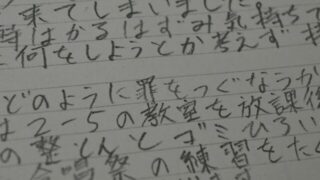 来てしまいました
時はかるはずみ気持ちで
何をしようとか考えず
どのように罪をつぐなうか
は2-5の教室を放課後
の整とんとゴミひろい
合唱祭の練習をたく